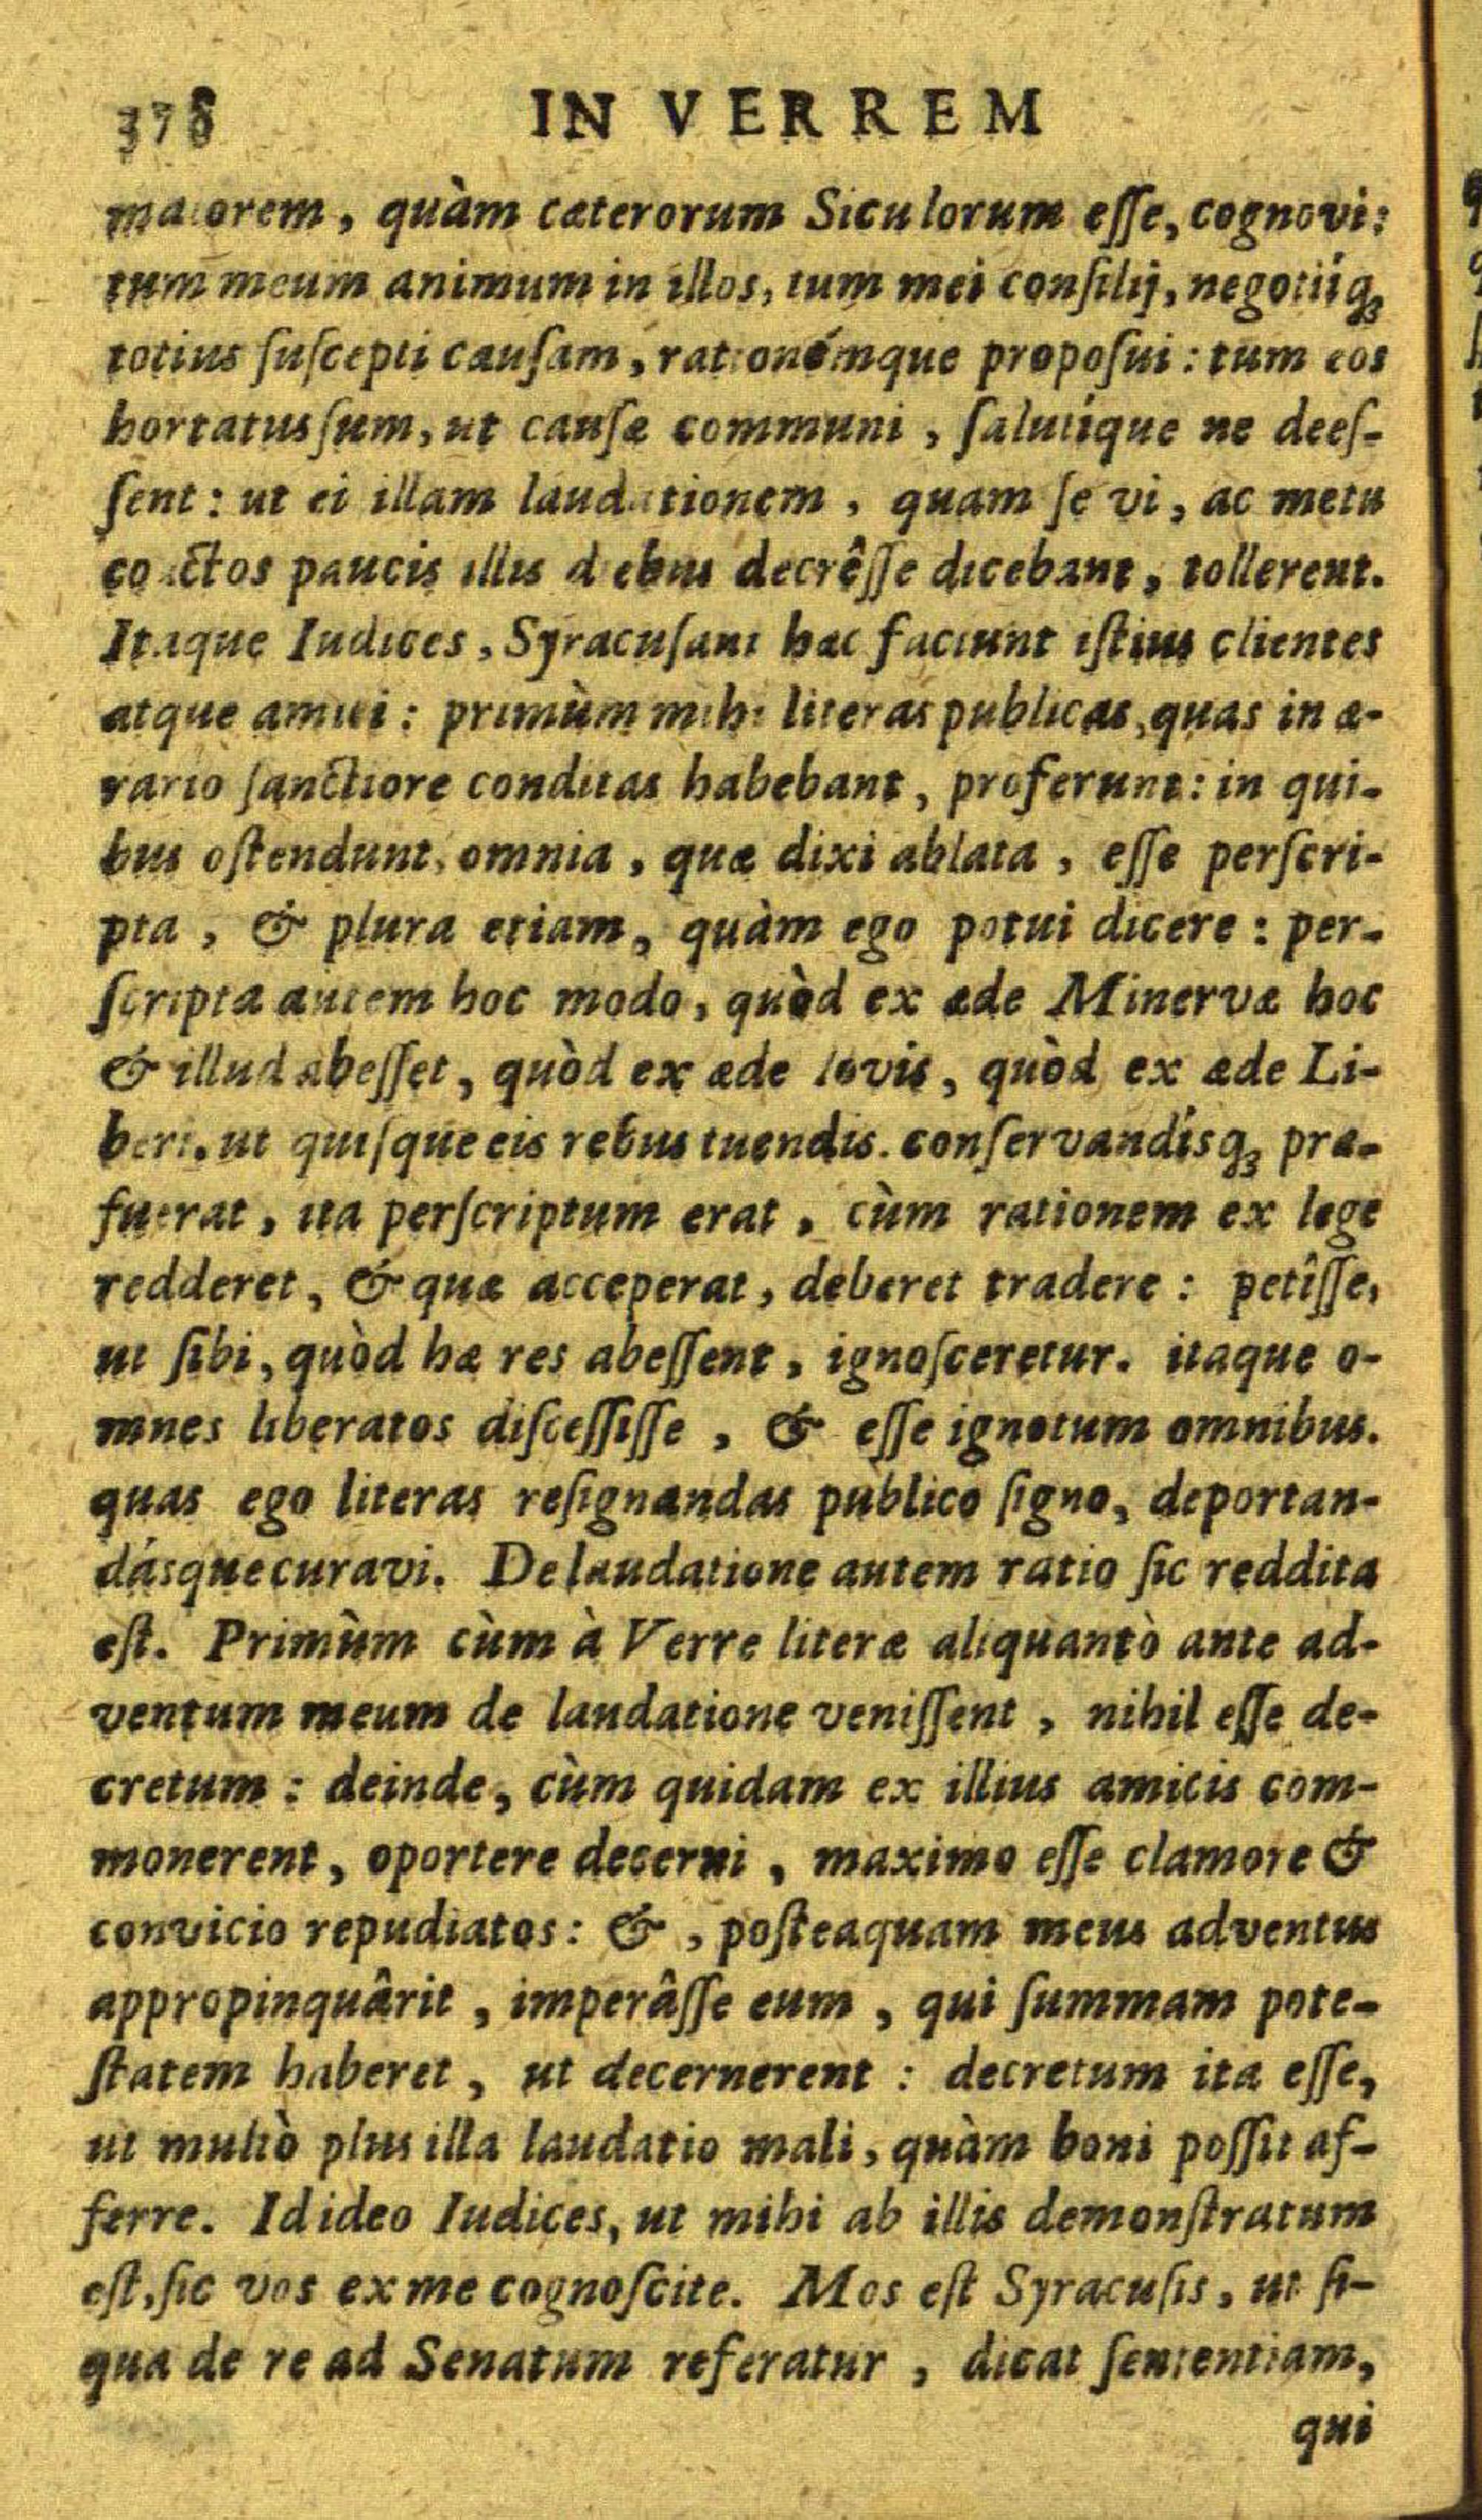 378 IN VERREM
maiorem, quàm cæterorum Siculorum eſſe, cognovi:
tum meum animum in illos, tum mei conſilij, negotiíq;
totius ſuſcepti cauſam, rationémque propoſui: tum eos
hortatus ſum, ut cauſæ communi, ſalutíque ne deeſ-
ſent: ut ei illam laudationem, quam ſe vi, ac metu
coactos paucis illis diebus decrêſſe dicebant, tollerent.
Itaque Iudices, Syracuſani hæc faciunt iſtius clientes
atque amici: primùm mihi literas publicas, quas in æ-
rario ſanctiore conditas habebant, proferunt: in qui-
bus oſtendunt, omnia, quæ dixi ablata, eſſe perſcri-
pta, & plura etiam, quàm ego potui dicere: per-
ſcripta autem hoc modo, quòd ex æde Minervæ hoc
& illud abeſſet, quòd ex æde Iovis, quòd ex æde Li-
beri. ut quiſque eis rebus tuendis. conſervandíſq; præ-
fuerat, ita perſcriptum erat, cùm rationem ex lege
redderet, & quæ acceperat, deberet tradere: petîſſe,
ut ſibi, quòd hæ res abeſſent, ignoſceretur. itaque o-
mnes liberatos diſceſſiſſe, & eſſe ignotum omnibus.
quas ego literas reſignandas publico ſigno, deportan-
dásque curavi. De laudatione autem ratio ſic reddita
eſt. Primùm cùm à Verre literæ aliquantò ante ad-
ventum meum de laudatione veniſſent, nihil eſſe de-
cretum: deinde, cùm quidam ex illius amicis com-
monerent, oportere decerni, maximo eſſe clamore &
convicio repudiatos: &, poſteaquam meus adventus
appropinquârit, imperâſſe eum, qui ſummam pote-
ſtatem haberet, ut decernerent: decretum ita eſſe,
ut multò plus illa laudatio mali, quàm boni poſſit af-
ferre. Id ideo Iudices, ut mihi ab illis demonſtratum
eſt, ſic vos ex me cognoſcite. Mos eſt Syracuſis, ut ſi-
qua de re ad Senatum referatur, dicat ſententiam,
qui